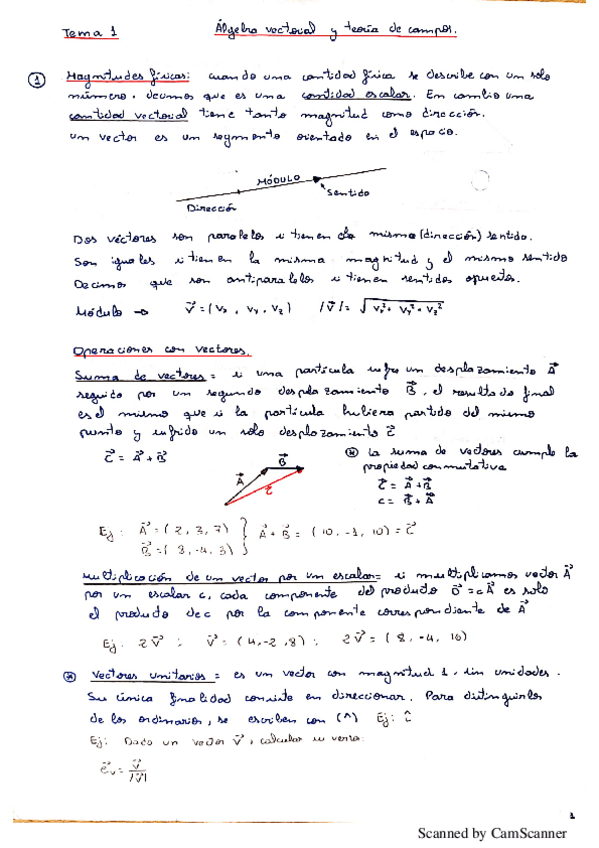 Tema 1
Álgebra vectorial y teoría de campos.
① Magnitudes físicas: cuando una cantidad física se describe con un solo
número, decimos que es una cantidad escalar. En cambio una
cantidad vectorial tiene tanto magnitud como dirección.
un vector es un segmento orientado en el espacio.
MÓDULO
Sentido
Dirección
Dos vectores son paralelos si tienen la misma (dirección) sentido.
Son iguales si tienen la misma magnitud y el mismo sentido
Decimos que son antiparalelos si tienen sentidos opuestos.
Módulo → V⃗ = (Vx, Vy, Vz) |V⃗| = √Vx² + Vy² + Vz²
Operaciones con vectores.
Suma de vectores = si una partícula sufre un desplazamiento A⃗
seguido por un segundo desplazamiento B⃗, el resultado final
es el mismo que si la partícula hubiera partido del mismo
punto y sufrido un solo desplazamiento C⃗
C⃗ = A⃗ + B⃗
A⃗ B⃗ C⃗
* La suma de vectores cumple la
propiedad conmutativa
C⃗ = A⃗ + B⃗
C = B⃗ + A⃗
Ej: A⃗ = (2, 3, 7) } A⃗ + B⃗ = (10, -1, 10) = C⃗
B⃗ = (8, -4, 3)
Multiplicación de un vector por un escalar = si multiplicamos vector A⃗
por un escalar c, cada componente del producto D⃗ = cA⃗ es solo
el producto de c por la componente correspondiente de A⃗
Ej: 2V⃗ ; V⃗ = (4, -2, 8) ; 2V⃗ = (8, -4, 16)
* Vectores unitarios = es un vector con magnitud 1, sin unidades.
Su única finalidad consiste en direccionar. Para distinguirlos
de los ordinarios, se escriben con (^) Ej: ĉ
Ej: Dado un vector V⃗, calcular su
e⃗v = V⃗ / |V⃗|
1
Scanned by CamScanner